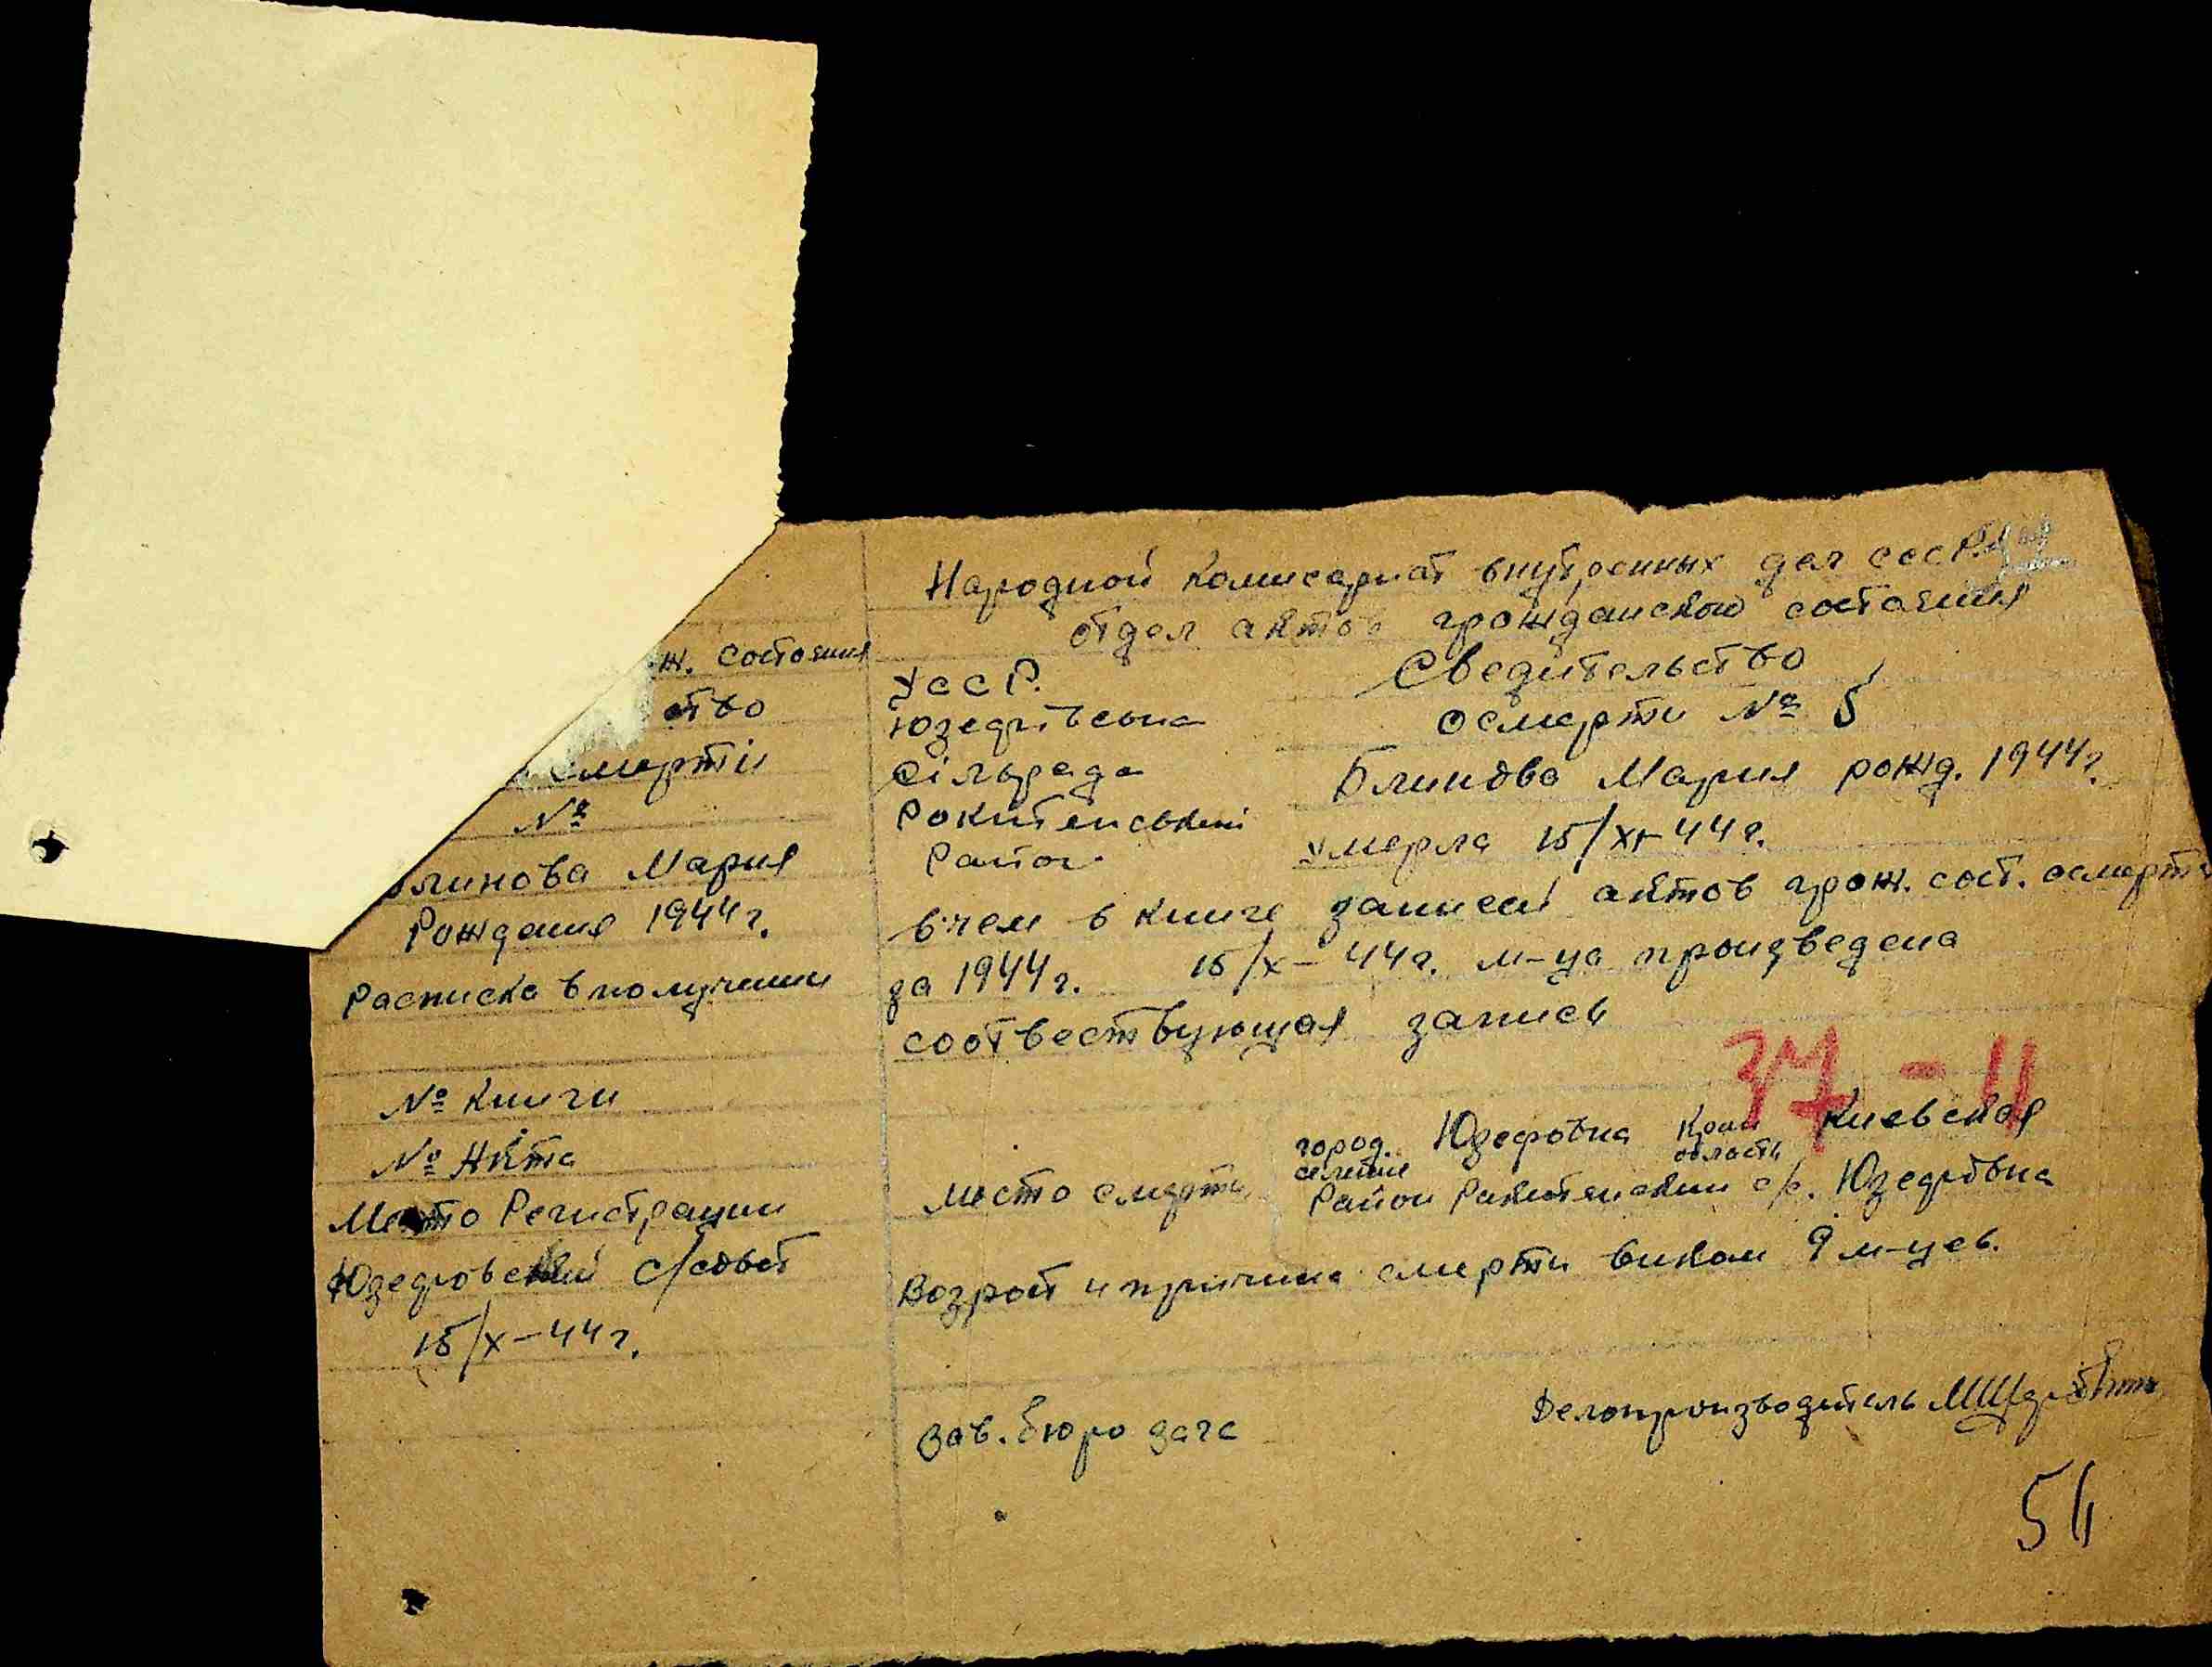 ж. состояния
ство
смерти
№
линова Мария
Рождения 1944 г.
Расписка в получении
№ книги
№ Акта
Место Регистрации
Юзефовский с/совет
15/X-44 г.
Народной комисариат внутренных дел СССР.
отдел актов гражданского состояния
УССР.
Юзефівська
Сільрада
Рокитенський
Район
Сведительство
о смерти № 5
Блинова Мария рожд. 1944 г.
умерла 15/XI-44 г.
в чем в книге записей актов грож. сост. о смерти
за 1944 г. 15/X-44 г. м-ца произведена
соотвествующая запись
37 - 11
Место смерти
город. Юзефовка край Киевская
селение область
Район Ракитянский с/с. Юзефовка
Возрост и причина смерти виком 9 м-цев.
Зав. бюро загс
Делопроизводитель
54